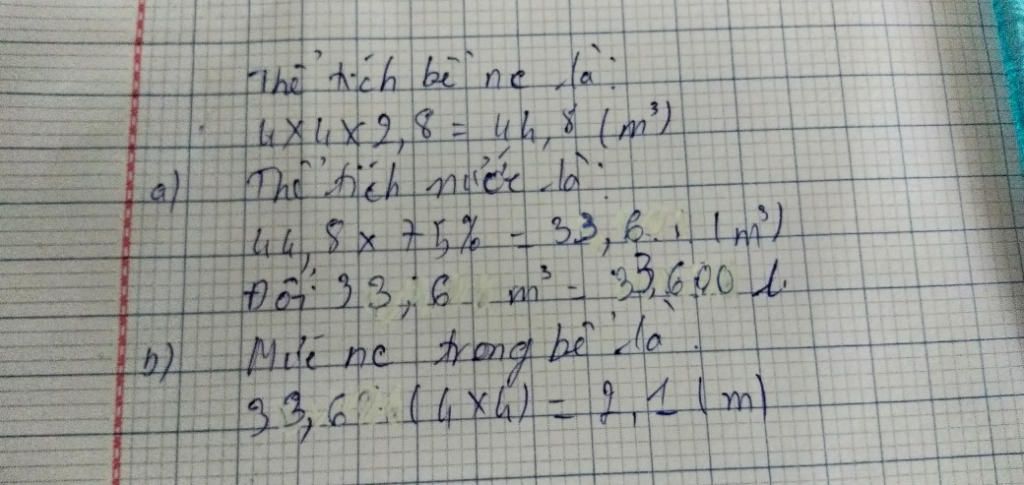 Thể tích bể nc là:
4 x 4 x 2,8 = 44,8 (m³)
a) Thể tích nước là:
44,8 x 75% = 33,6 (m³)
Đổi: 33,6 m³ = 33,600 l.
b) Mức nc trong bể là
33,6 : (4 x 4) = 2,1 (m)